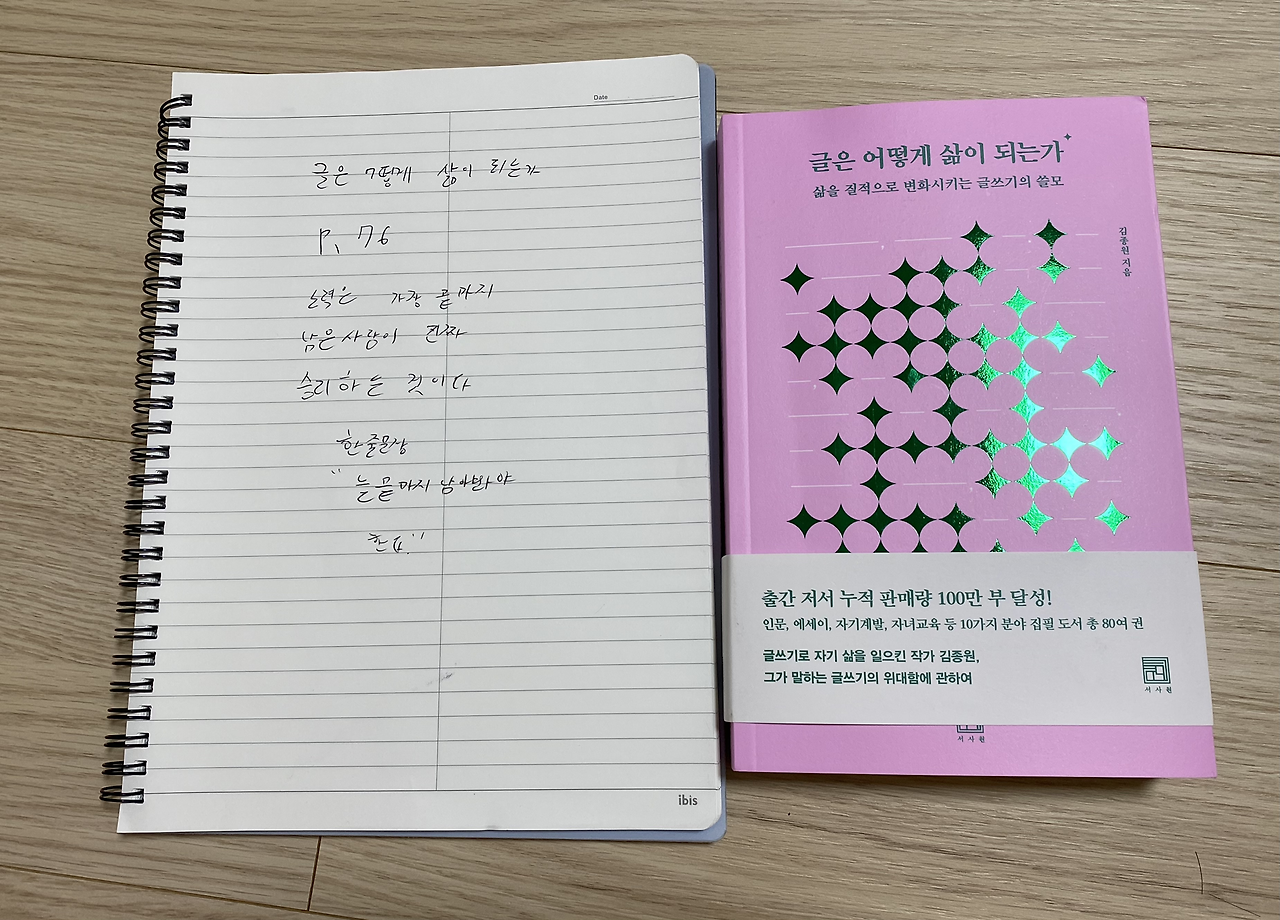 Date
글은 어떻게 삶이 되는가
P. 76
노력은 가장 끝까지
남은 사람이 진짜
승리하는 것이다
한줄문장
"늘 끝까지 남아봐야
한다."
ibis
글은 어떻게 삶이 되는가
삶을 질적으로 변화시키는 글쓰기의 쓸모
김종원 지음
출간 저서 누적 판매량 100만 부 달성!
인문, 에세이, 자기계발, 자녀교육 등 10가지 분야 집필 도서 총 80여 권
글쓰기로 자기 삶을 일으킨 작가 김종원,
그가 말하는 글쓰기의 위대함에 관하여
서사원
서사원